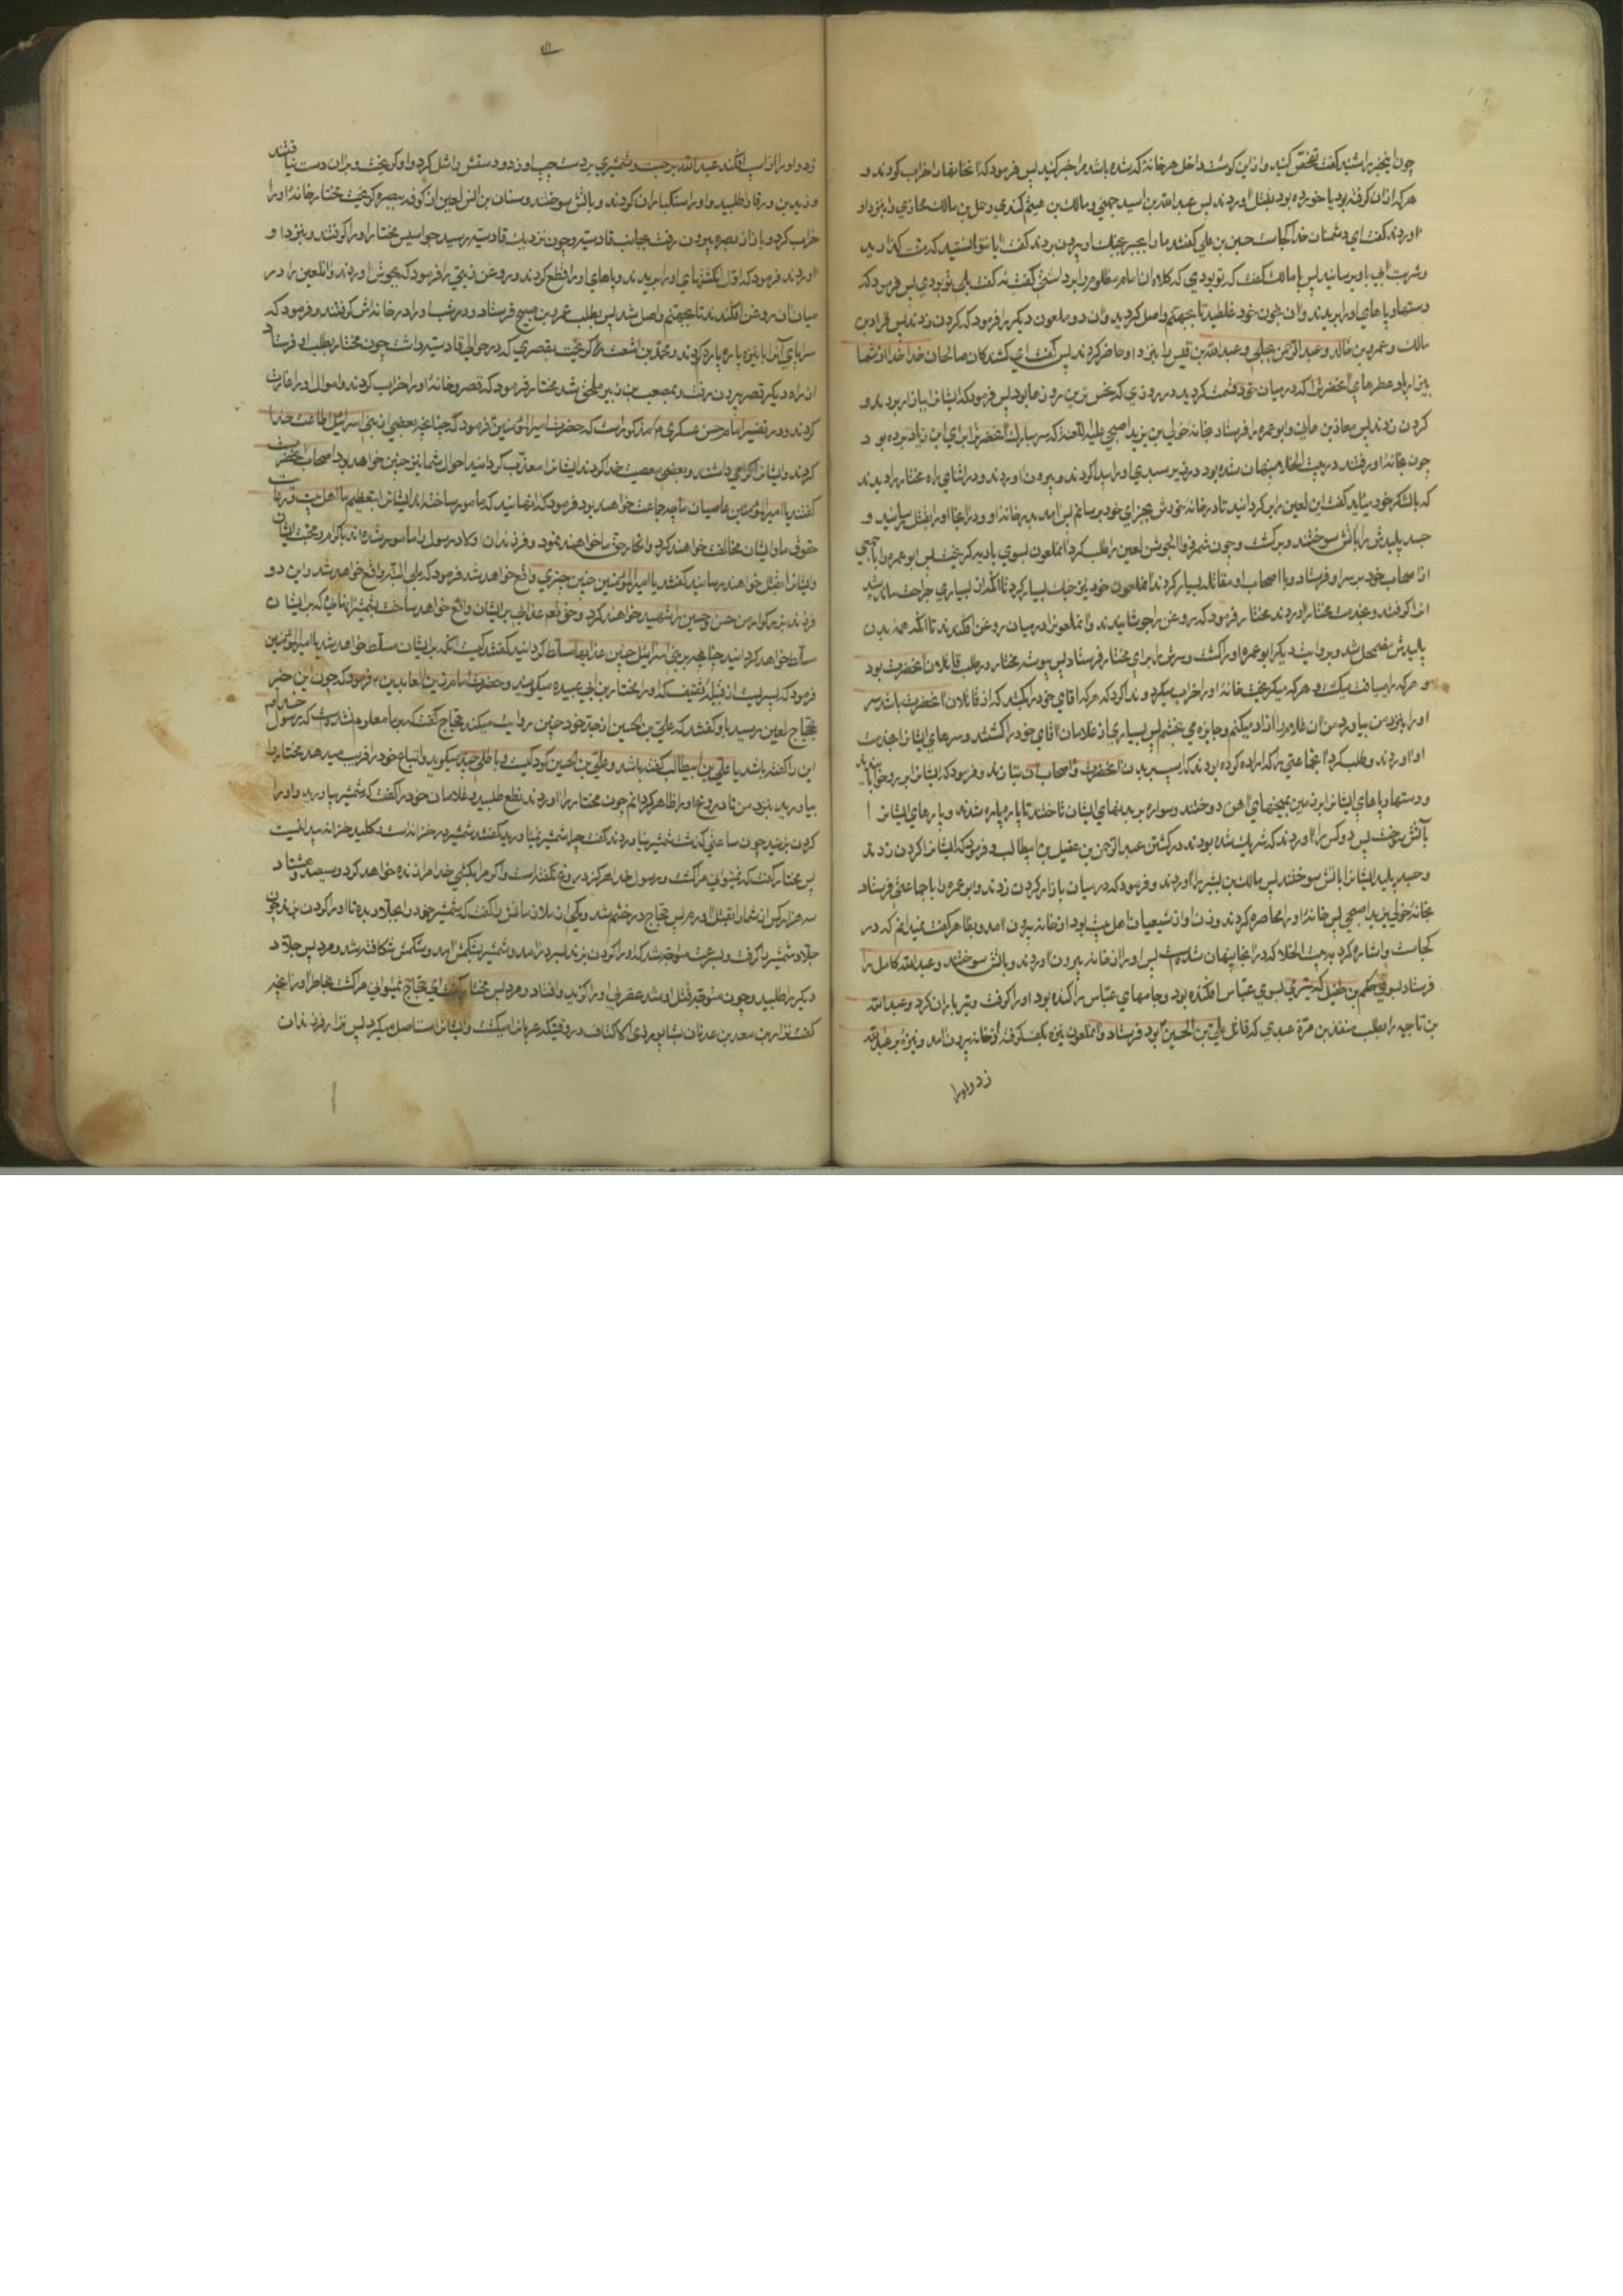 چون اینخبر را شنید گفت تفحص کنید و از این کوشند داخل هر خانهٔ که شده باشد مرا خبر کنید پس فرمود که آنخانها را خراب کردند و
هر که از آن گرفته بود یا خورده بود بقتل آوردند پس عبدالله بن اسید جهنی و مالک بن هیثم کندی و حمل بن مالک محاربی را بنزد او
آوردند گفت ای دشمنان خدا کجاست حسین بن علی گفتند ما را بجبر بجنک او بیرون بردند گفت آیا نتوانستید که منت گذارید
و شربت آبی باو برسانید پس با مالک گفت که تو بودی که کلاه آن امام مظلوم را برداشتی گفت نه گفت بلی تو بودی پس فرمود که
دستها و پاهای او را بریدند و در خون خود غلطید تا بجهنم واصل گردید و آن دو ملعون دیگر را فرمود که گردن زدند پس قراد بن
مالک و عمرو بن خالد و عبدالرحمن بجلی و عبدالله بن قیس را بنزد او حاضر کردند پس گفت ای کشندکان صالحان خدا خدا از شما
بیزار باد عطرهای آنحضرت را که در میان خود قسمت کردید در روزی که نحس ترین روزها بود پس فرمود که ایشانرا ببازار بردند و
گردن زدند پس معاذ بن هانی و ابوعمره را فرستاد بخانهٔ خولی بن یزید اصبحی علیه اللعنه که سر مبارک آنحضرت را برای ابن زیاد برده بود
چون بخانهٔ او رفتند در بیت الخلا پنهان شده بود در زیر سبدی او را پیدا کردند و بیرون آوردند و در اثنای راه مختار را دیدند
که با لشکر خود میاید گفت این لعین را برگردانید تا در خانهٔ خودش بجزای خود برسانم پس آمد بدر خانهٔ او و در آنجا او را بقتل رسانید و
جسد پلیدش را باتش سوختند و برگشت و چون شمر ذوالجوشن لعین را طلب کرد آنملعون بسوی بادیه گریخت پس ابوعمره را با جمعی
از اصحاب خود بر سر او فرستاد و با اصحاب او مقاتله بسیار کردند آنملعون خود نیز جنک بسیار کرد تا آنکه از بسیاری جراحت مانده شد
او را گرفتند و بخدمت مختار آوردند مختار فرمود که روغن را جوشانیدند و آنملعونرا در میان روغن افکندند تا آنکه همه بدن
پلیدش مضمحل شد و بروایت دیگر ابوعمره او را کشت و سرش را برای مختار فرستاد پس پیوسته مختار در طلب قاتلان آنحضرت بود
و هر که را میافت میکشت و هر که میگریخت خانهٔ او را خراب میکرد و ندا کرد که هر که آقای خود را بکشد که از قاتلان آنحضرت باشد سر
او را بنزد من بیاورد من آن غلام را آزاد میکنم و جایزه می بخشم پس بسیاری از غلامان آقای خود را کشتند و سرهای ایشانرا بخدمت
او آوردند و طلب کرد آنجماعتی را که اراده کرده بودند که اسب بر بدن آنحضرت و اصحاب آن بتازند و فرمود که ایشانرا برو خوابانیدند
و دستها و پاهای ایشانرا بزمین بمیخهای آهن دوختند و سواره بر بدنهای ایشان تاختند تا پاره پاره شدند و پارهای ایشانرا
بآتش سوخت پس دو کس را آوردند که شریک شده بودند در کشتن عبدالرحمن بن عقیل بن ابیطالب و فرمود که ایشانرا گردن زدند
و جسد پلید ایشانرا باتش سوختند پس مالک بن بشیر را آوردند و فرمود که در میان بازار گردن زدند و ابوعمره را با جماعتی فرستاد
بخانهٔ خولی بن یزید اصبحی پس خانهٔ او را محاصره کردند و زن او از شیعیان اهل بیت بود از خانه بیرون آمد و بظاهر گفت نمیدانم که در
کجاست و اشاره کرد به بیت الخلا که در آنجا پنهان شده است پس او را از خانه بیرون آوردند و باتش سوختند و عبدالله کامل را
فرستاد بسوی حکم بن طفیل که تیری بسوی عباس افکنده بود و جامهای عباس را کنده بود او را گرفت و تیر باران کرد و عبدالله
بن ناجیه را بطلب منقذ بن مره عبدی که قاتل علی بن الحسین بود فرستاد و آنملعون نیزه بکف گرفته از خانه بیرون آمد و نیزه بر عبدالله
زد و او را
زد و او را از اسب افکند عبدالله برجست و شمشیری بر دست چپ او زد و دستش را شل کرد و او گریخت و بر آن دست نیافتند
و زید بن ورقا را طلبید و او را سنکباران کردند و باتش سوختند و سنان بن انس لعین از کوفه ببصره گریخت مختار خانهٔ او را
خراب کرد و باز از بصره بیرون رفت بجانب قادسیه و چون نزدیک قادسیه رسید جواسیس مختار او را گرفتند و بنزد او
آوردند فرمود که اول انگشتهای او را بریدند و پاهای او را قطع کردند و روغن زیتی را فرمود که بجوش آوردند و آنلعین را در
میان آن روغن افکندند تا بجهنم واصل شد پس بطلب عمرو بن صبیح فرستاد و در شب او را در خانه اش گرفتند و فرمود که
سراپای آنرا با نیزه پاره پاره کردند و محمد بن اشعث گریخت بقصری که در حوالی قادسیه داشت چون مختار بطلب او فرستاد
از راه دیگر قصر بیرون رفت و بمصعب بن زبیر ملحق شد مختار فرمود که قصر و خانهٔ او را خراب کردند و اموال او را غارت
کردند و در تفسیر امام حسن عسکری ع مذکور است که حضرت امیرالمؤمنین ع فرمود که چنانچه بعضی از بنی اسرائیل اطاعت خدا
کردند و ایشانرا گرامی داشتند و بعضی معصیت خدا کردند ایشانرا معذب گردانید احوال شما نیز چنین خواهد بود اصحاب آنحضرت
گفتند یا امیرالمؤمنین عاصیان ما چه جماعت خواهند بود فرمود که آنهایند که مامور ساخته اند ایشانرا بتعظیم ما اهل بیت و رعایت
حقوق ما و ایشان مخالفت خواهند کرد و انکار حق ما خواهند نمود و فرزندان اولاد رسول را مامور شده اند باکرام و محبت ایشان
و ایشانرا بقتل خواهند رسانید گفتند یا امیرالمؤمنین چنین چیزی واقع خواهد شد فرمود که بلی البته واقع خواهد شد و این دو
فرزند بزرگوار من حسن و حسین را شهید خواهند کرد و حق تعم عذاب بر ایشان واقع خواهد ساخت بشمشیر آنهائی که بر ایشان
مسلط خواهد گردانید چنانچه بر بنی اسرائیل چنین عذابها مسلط گردانید گفتند کیست آنکه بر ایشان مسلط خواهد شد یا امیرالمؤمنین
فرمود که پسریست از قبیلهٔ ثقیف که او را مختار بن ابی عبیده میگویند و حضرت امام زین العابدین ع فرمود که چون این خبر
بحجاج لعین رسید باو گفتند که علی بن الحسین از جد خود چنین روایت میکند حجاج گفت که بر ما معلوم نشده است که رسول خدا
این را گفته باشد یا علی بن ابیطالب گفته باشد و علی بن الحسین کودکیست و باطلی چند میگوید و اتباع خود را فریب میدهد مختار را
بیاورید بنزد من تا دروغ او را ظاهر گردانم چون مختار را آوردند نطع طلبید و غلامان خود را گفت که شمشیر بیاورید و او را
گردن بزنید چون ساعتی گذشت شمشیر نیاوردند گفت چرا شمشیر نمیاورید گفتند شمشیر در خزانه است و کلید خزانه پیدا نیست
پس مختار گفت که نمیتوانی مرا کشت و رسول خدا هرگز دروغ نگفته است و اگر مرا بکشی خدا مرا زنده خواهد کرد و سیصد و هشتاد
سه هزار کس از شما را بقتل آورم پس حجاج در خشم شد و یکی از ملازمانش را گفت که شمشیر خود را بجلاد بده تا او را گردن بزند چون
جلاد شمشیر را گرفت و بسرعت متوجه شد که او را گردن بزند بسر درآمد و شمشیر بشکمش آمد و شکمش شکافته شد و مرد پس جلاد
دیگر را طلبید و چون متوجه قتل او شد عقربی او را گزید و افتاد و مرد پس مختار گفت ای حجاج نمیتوانی مرا کشت بخاطر آور آنچه
گفت نزار بن معد بن عدنان بشاپور ذی الاکتاف در وقتیکه عربانرا میکشت و ایشانرا مستاصل میکرد پس نزار فرزندان